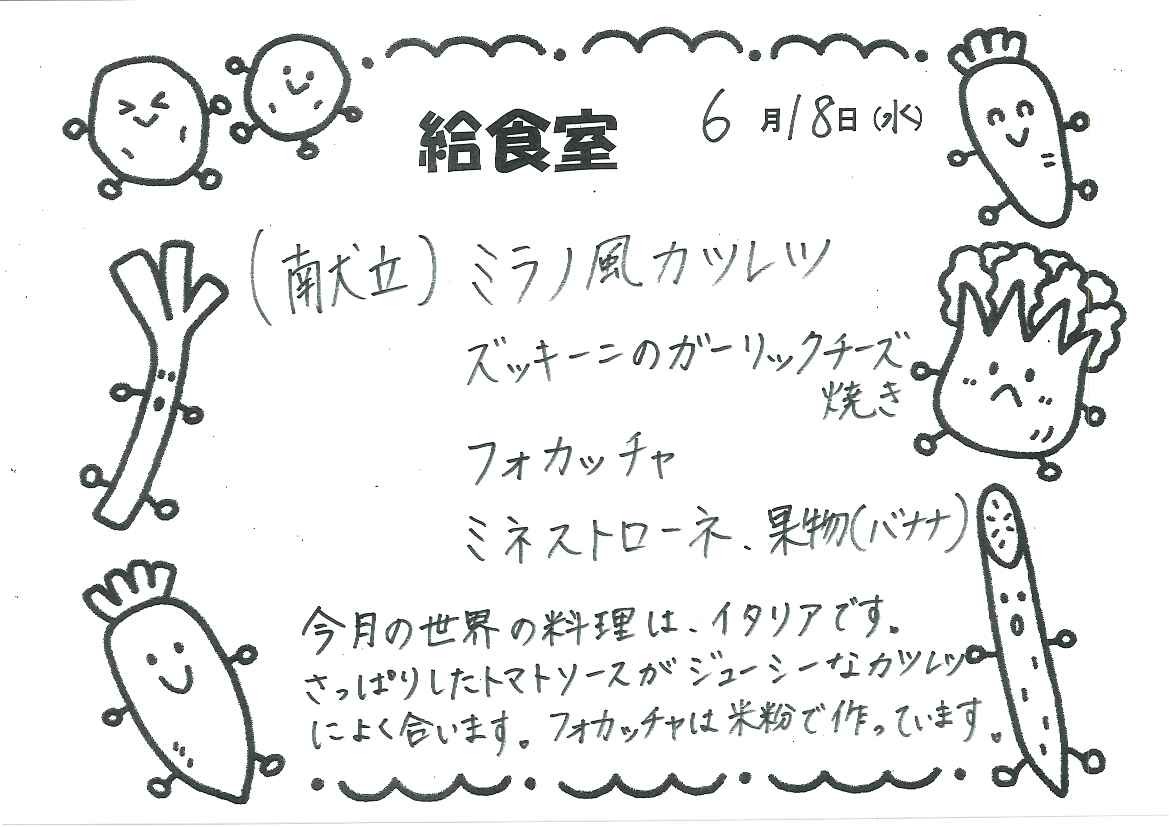 給食室 6月18日(水)
(献立) ミラノ風カツレツ
ズッキーニのガーリックチーズ
焼き
フォカッチャ
ミネストローネ、果物(バナナ)
今月の世界の料理は、イタリアです。
さっぱりしたトマトソースがジューシーなカツレツ
によく合います。フォカッチャは米粉で作っています。